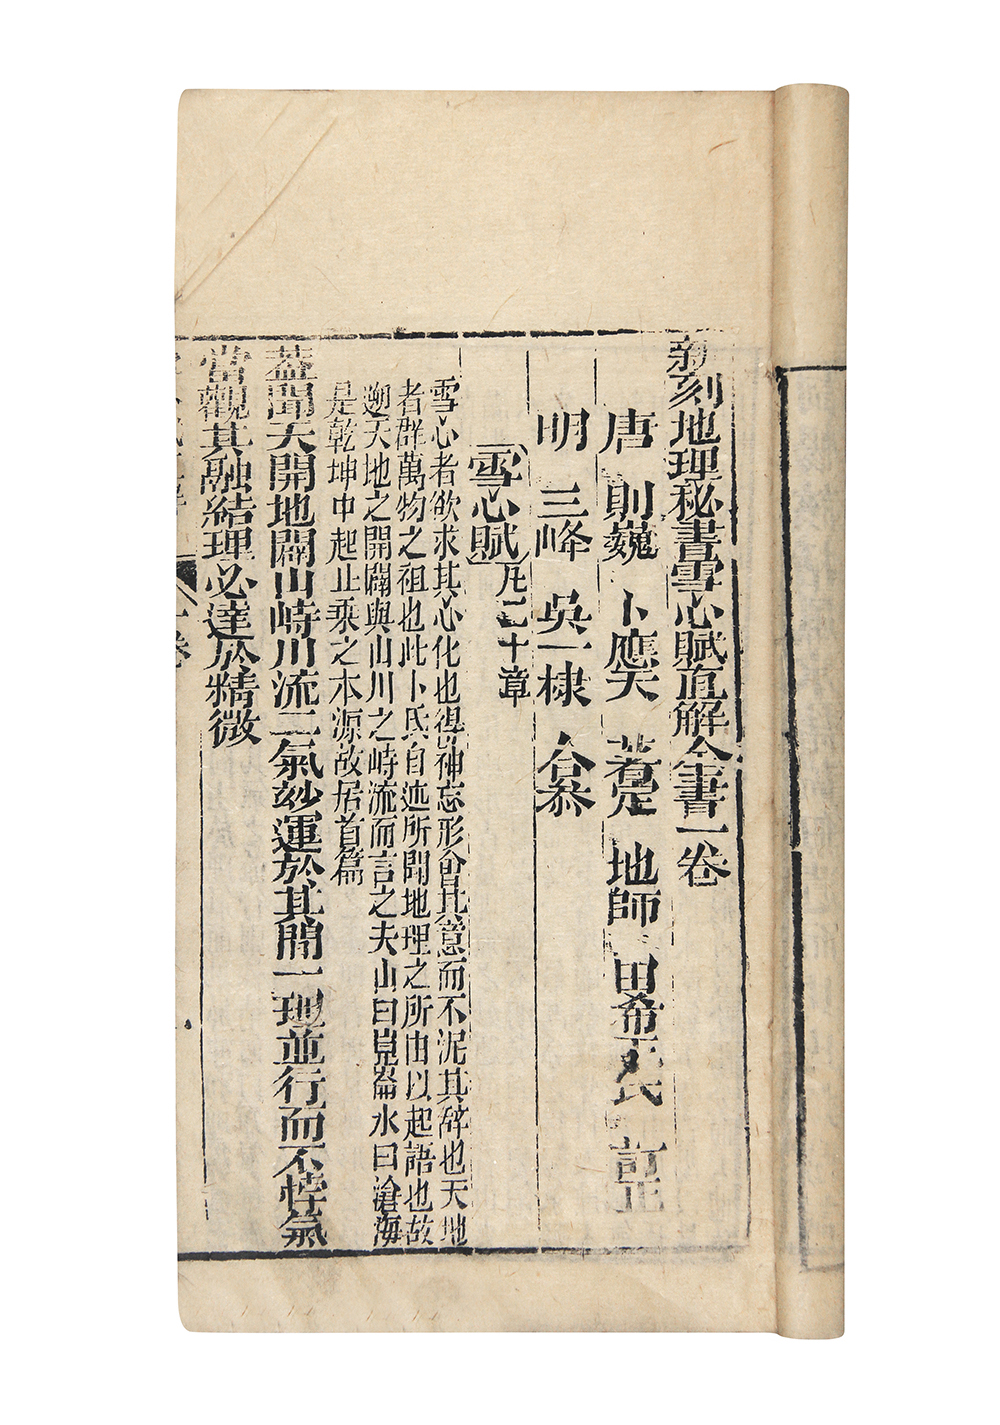 新刻地理秘書雪心賦直解全書一卷
唐 則巍 卜應天 著 地師 田希玉氏 訂正
明 三峰 吳一棣 仝纂
雪心賦 凡二十章
雪心者欲求其心化也得神忘形會其意而不泥其辭也天地
者群萬物之祖也此卜氏自述所聞地理之所由以起語也故
遡天地之開闢與山川之峙流而言之夫山曰崑崙水曰滄海
是乾坤中起止乘之本源故居首篇
蓋聞天開地闢山峙川流二氣玅運於其間一理並行而不悖氣
當觀其融結理必達於精微
一卷